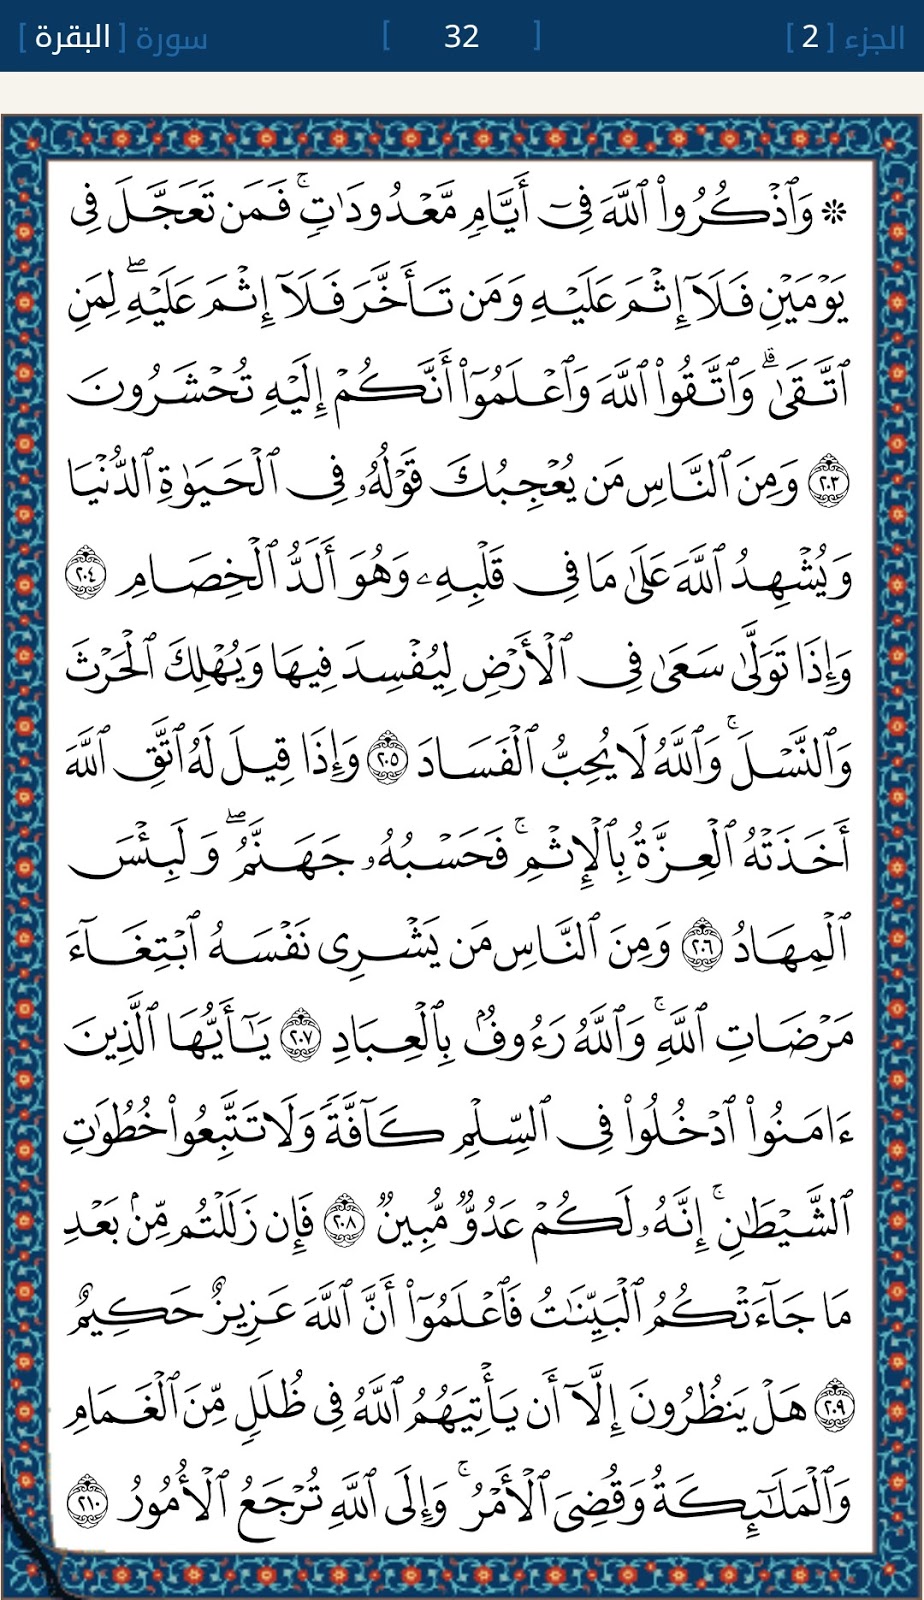 الجزء [ 2 ] [ 32 ] سورة [ البقرة ]
۞ وَٱذْكُرُوا۟ ٱللَّهَ فِىٓ أَيَّامٍ مَّعْدُودَٰتٍ ۚ فَمَن تَعَجَّلَ فِى
يَوْمَيْنِ فَلَآ إِثْمَ عَلَيْهِ وَمَن تَأَخَّرَ فَلَآ إِثْمَ عَلَيْهِ ۖ لِمَنِ
ٱتَّقَىٰ ۗ وَٱتَّقُوا۟ ٱللَّهَ وَٱعْلَمُوٓا۟ أَنَّكُمْ إِلَيْهِ تُحْشَرُونَ
٢٠٣ وَمِنَ ٱلنَّاسِ مَن يُعْجِبُكَ قَوْلُهُۥ فِى ٱلْحَيَوٰةِ ٱلدُّنْيَا
وَيُشْهِدُ ٱللَّهَ عَلَىٰ مَا فِى قَلْبِهِۦ وَهُوَ أَلَدُّ ٱلْخِصَامِ ٢٠٤
وَإِذَا تَوَلَّىٰ سَعَىٰ فِى ٱلْأَرْضِ لِيُفْسِدَ فِيهَا وَيُهْلِكَ ٱلْحَرْثَ
وَٱلنَّسْلَ ۚ وَٱللَّهُ لَا يُحِبُّ ٱلْفَسَادَ ٢٠٥ وَإِذَا قِيلَ لَهُ ٱتَّقِ ٱللَّهَ
أَخَذَتْهُ ٱلْعِزَّةُ بِٱلْإِثْمِ ۚ فَحَسْبُهُۥ جَهَنَّمُ ۖ وَلَبِئْسَ
ٱلْمِهَادُ ٢٠٦ وَمِنَ ٱلنَّاسِ مَن يَشْرِى نَفْسَهُ ٱبْتِغَآءَ
مَرْضَاتِ ٱللَّهِ ۚ وَٱللَّهُ رَءُوفٌۢ بِٱلْعِبَادِ ٢٠٧ يَٰٓأَيُّهَا ٱلَّذِينَ
ءَامَنُوا۟ ٱدْخُلُوا۟ فِى ٱلسِّلْمِ كَآفَّةً وَلَا تَتَّبِعُوا۟ خُطُوَٰتِ
ٱلشَّيْطَٰنِ ۚ إِنَّهُۥ لَكُمْ عَدُوٌّ مُّبِينٌ ٢٠٨ فَإِن زَلَلْتُم مِّنۢ بَعْدِ
مَا جَآءَتْكُمُ ٱلْبَيِّنَٰتُ فَٱعْلَمُوٓا۟ أَنَّ ٱللَّهَ عَزِيزٌ حَكِيمٌ
٢٠٩ هَلْ يَنظُرُونَ إِلَّآ أَن يَأْتِيَهُمُ ٱللَّهُ فِى ظُلَلٍ مِّنَ ٱلْغَمَامِ
وَٱلْمَلَٰٓئِكَةُ وَقُضِىَ ٱلْأَمْرُ ۚ وَإِلَى ٱللَّهِ تُرْجَعُ ٱلْأُمُورُ ٢١٠